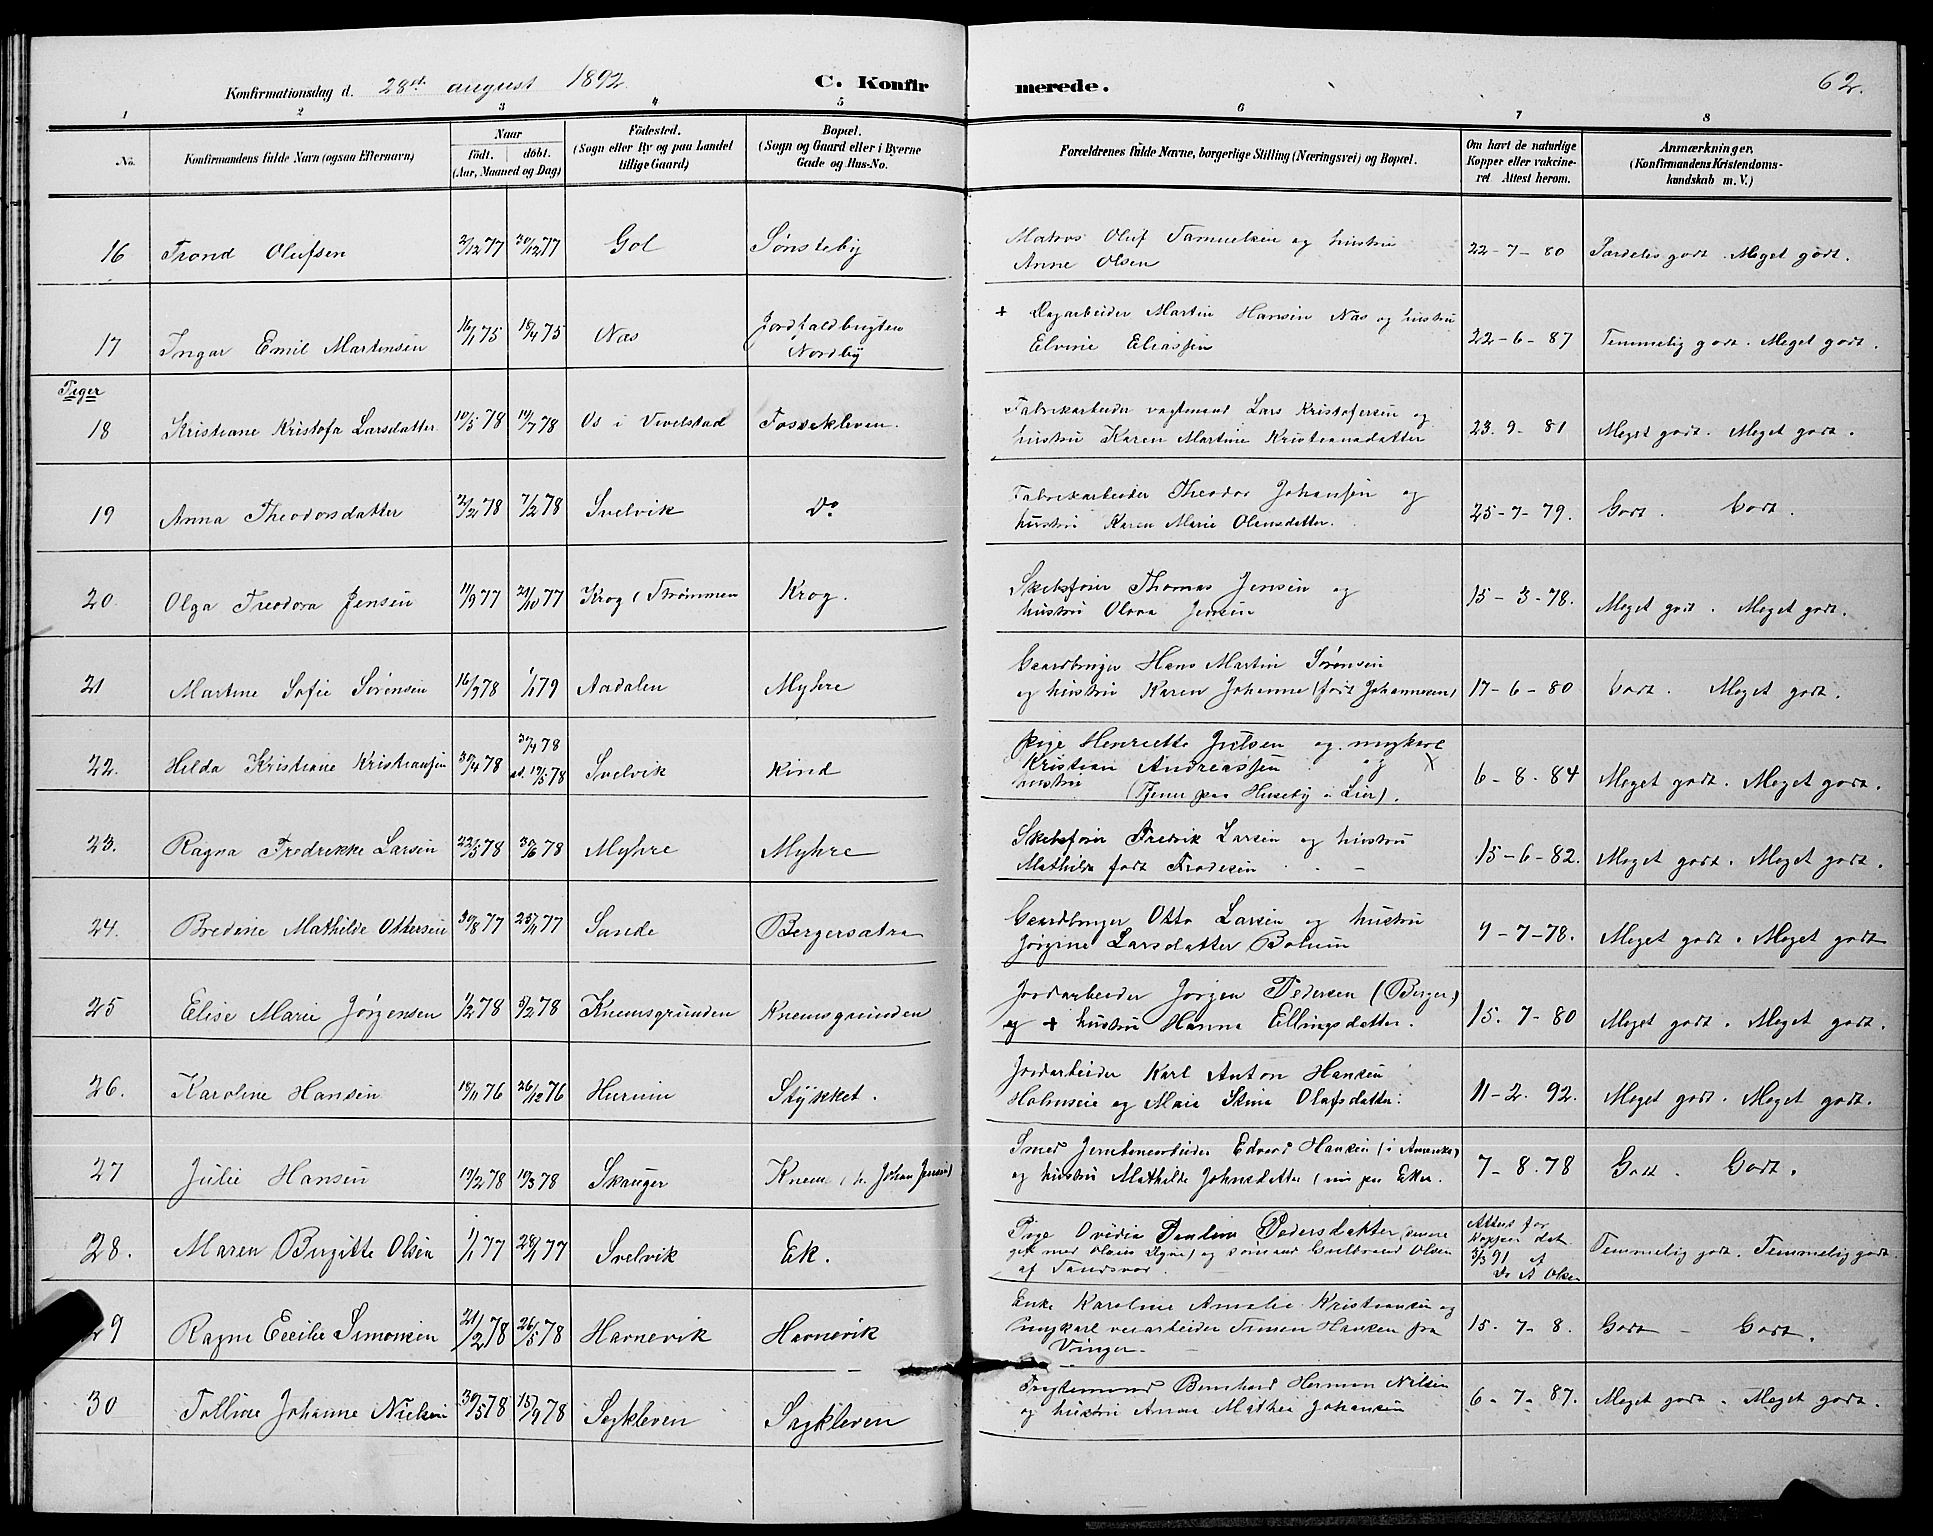 Konfirmationsdag d. 28de august 1892 C. Konfirmerede. 62.
1 2 3 4 5 6 7 8
No. Konfirmandens fulde Navn (ogsaa Efternavn) Naar födt. döbt. (Aar, Maaned og Dag) Födested. (Sogn eller By og paa Landet tillige Gaard) Bopæl. (Sogn og Gaard eller i Byerne Gade og Hus-No. Forældrenes fulde Navne, borgerlige Stilling (Næringsvei) og Bopæl. Om havt de naturlige Kopper eller vakcineret. Attest herom. Anmærkninger. (Konfirmandens Kristendomskundskab m. V.)
16 Trond Olufsen 2/12 77 30/12 77 Gol Sønsteby Matros Oluf Samuelsen og hustru
Anne Olsen 22-7-80 Særdeles godt. Meget godt.
17 Ingar Emil Martinsen 16/1 75 18/4 75 Næs Jordfaldbugten
Nordby + Dagarbeider Martin Hansen Næs og hustru
Elvine Eliassen 22-6-87 Temmelig godt. Meget godt.
Piger
18 Kristiane Kristofa Larsdatter 10/5 78 14/7 78 Os i Vivelstad Fossekleven. Fabrikarbeider vagtmand Lars Kristofersen og
hustru Karen Martine Kristiansdatter 23-9-81 Meget godt. Meget godt.
19 Anna Theodorsdatter 2/2 78 7/2 78 Svelvik Do Fabrikarbeider Theodor Johansen og
hustru Karen Marie Olensdatter. 25-7-79. Godt. Godt.
20. Olga Theodora Jensen 11/9 77 21/10 77 Krog (Strømmen Krog. Skibsfører Thomas Jensen og
hustru Olava Jensen 15-3-78. Meget godt. Meget godt.
21 Martine Sofie Sørensen 16/9 78 1/1 79 Aadalen Myhre Gaardbruger Hans Martin Sørensen
og hustru Karen Johanne (født Johannesen) 17-6-80 Godt. Meget godt.
22. Hilda Kristiane Kristiansen 30/4 78 Svelvik Kind pige Henriette Julsen og ungkarl
Kristian Andreassen og
hustru (Tjener paa Huseby i Lier). 6-8-84 Meget godt. Meget godt.
23. Ragna Fredrikke Larsen 22/5 78 30/6 78 Myhre Myhre Skibsfører Fredrik Larsen og hustru
Mathilde født Frodesen 15-6-82. Meget godt. Meget godt.
24. Bredine Mathilde Ottersen 30/8 77 25/11 77 Sande Bergersætra Gaardbruger Otto Larsen og hustru
Jørgine Larsdatter Bolum 9-7-78. Meget godt. Meget godt
25 Elise Marie Jørgensen 1/2 78 5/2 78 Knemsgrunden Knemsgrunden Jordarbeider Jørgen Pedersen (Berger)
og + hustru Hanna Ellingsdatter. 15-7-80 Meget godt. Meget godt.
26. Karoline Hansen 18/11 76 26/12 76 Hurum Stykket. Jordarbeider Karl Anton Hansen
Holmseie og Maia Stina Olafsdatter. 11-2-92. Meget godt. Meget godt.
27 Julie Hansen 19/2 78 17/3 78 Skauger Knem (h. Johan Jensen) Smed Edvard Hansen (i Amerika)
og hustru Mathilde Johnsdatter (nu paa Eker. 7-8-78 Godt. Godt.
28. Maren Birgitte Olsen 1/1 77 28/1 77 Svelvik Ek. Pige Ovidia Paulina Pedersdatter
og sømand Gulbrand Olsen
af Sandsvær. Attest for
Kopper dat
3/3 91 af
Dr A Olsen Temmelig godt. Temmelig godt.
29 Ragna Cecilie Simonsen 21/2 78 26/5 78 Havnevik Havnevik Enke Karoline Amalie Kristiansen og
ungkarl veiarbeider Simen Hansen fra
Vinger. 15-7-8. Godt - Godt.
30 Tolline Johanne Nielsen 30/5 78 15/9 78 Sagkleven Sagkleven Fragtemand Bernhard Herman Nilsen
og hustru Anna Mathea Johansen 6-7-87. Meget godt. Meget godt.